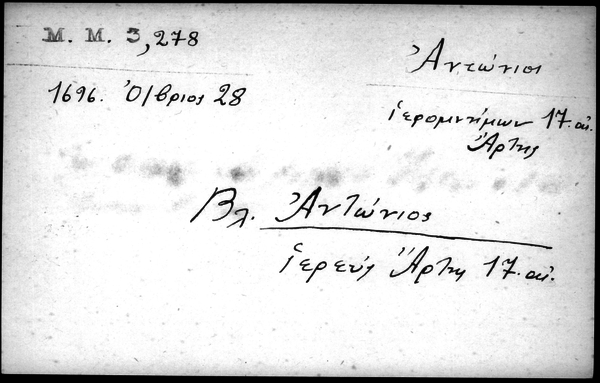 Μ. Μ. 3,278
Ἀντώνιος
1696. Ὀ/βριος 28
ἱερομνήμων 17. αἰ.
Ἄρτης
Βλ. Ἀντώνιος
ἱερεύς Ἄρτης 17. αἰ.